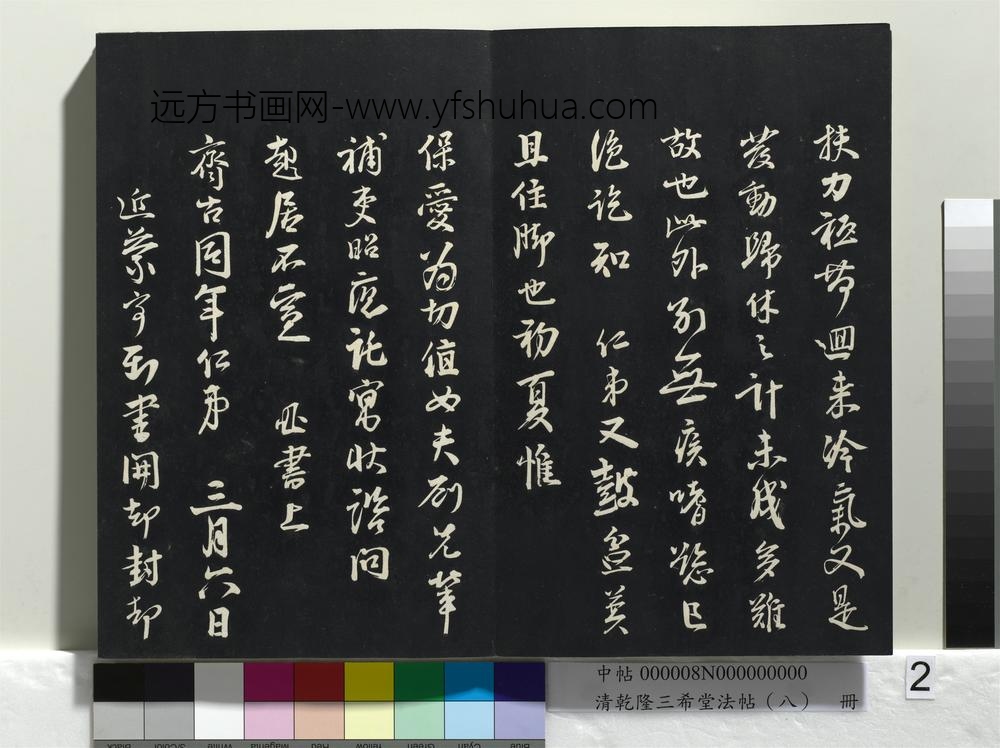 远方书画网-www.yfshuhua.com
扶力祗㡿廻来冷氣又是
發動歸休之計未成多難
故也此外別無疾嗜慾已
絕訖知 仁弟又鼓盆莫
且住脚也初夏惟
保愛為切值女夫劉兄筆
補吏昭應託寓狀諮問
起居不宣 昷書上
齊古同年仁弟 三月六日
近蒙寄到書開却封却
中帖 000008N000000000
清乾隆三希堂法帖（八） 冊
2
Black
3/Color
White
Magenta
Red
Yellow
Green
Cyan
Blue